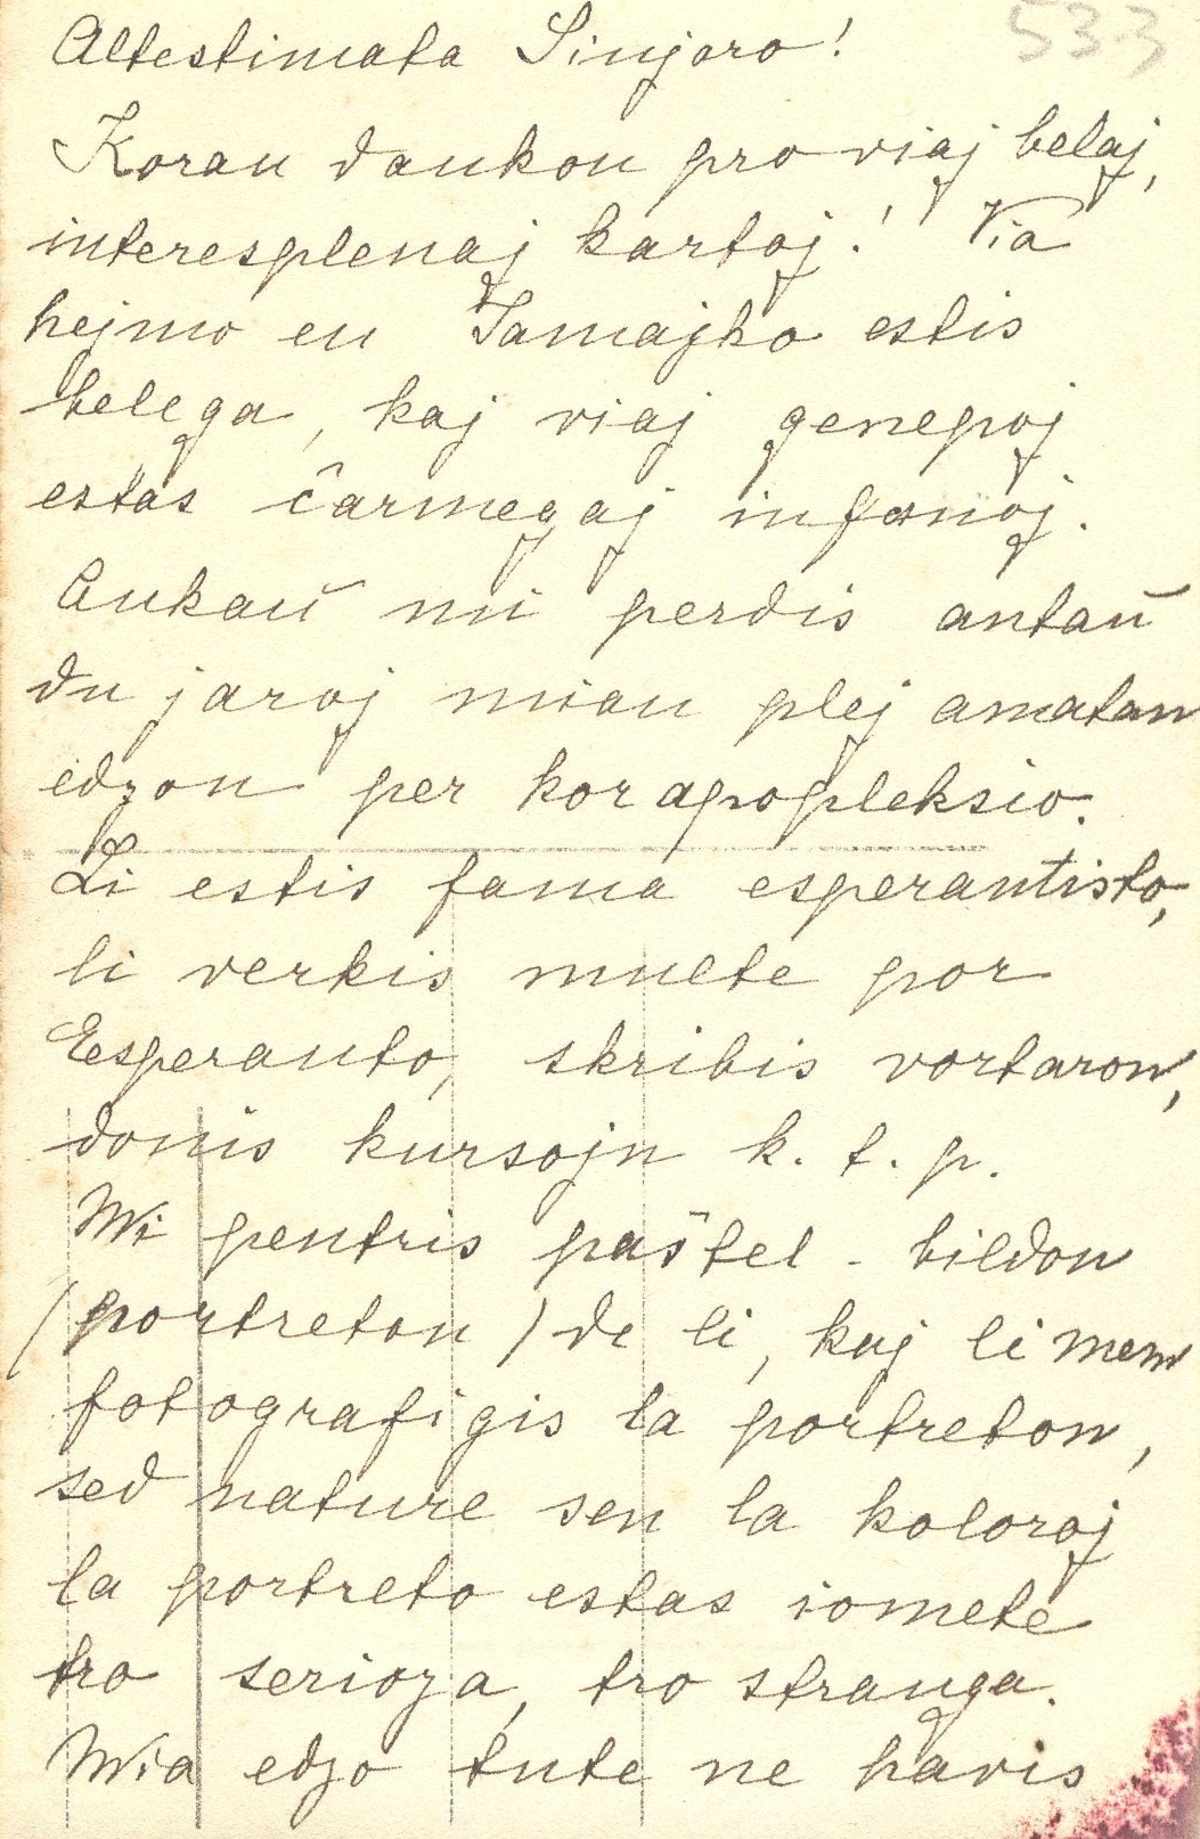 533
Altestimata Sinjoro!
Koran dankon pro viaj belaj,
interesplenaj kartoj! Via
hejmo en Jamajko estis
belega, kaj viaj genepoj
estas ĉarmegaj infanoj.
Ankaŭ mi perdis antaŭ
du jaroj mian plej amatan
edzon per korapopleksio.
Li estis fama esperantisto,
li verkis multe por
Esperanto, skribis vortaron,
donis kursojn k. t. p.
Mi pentris paŝtel-bildon
(portreton) de li, kaj li mem
fotografigis la portreton,
sed nature sen la koloroj
la portreto estas iomete
tro serioza, tro stranga.
Mia edzo tute ne havis